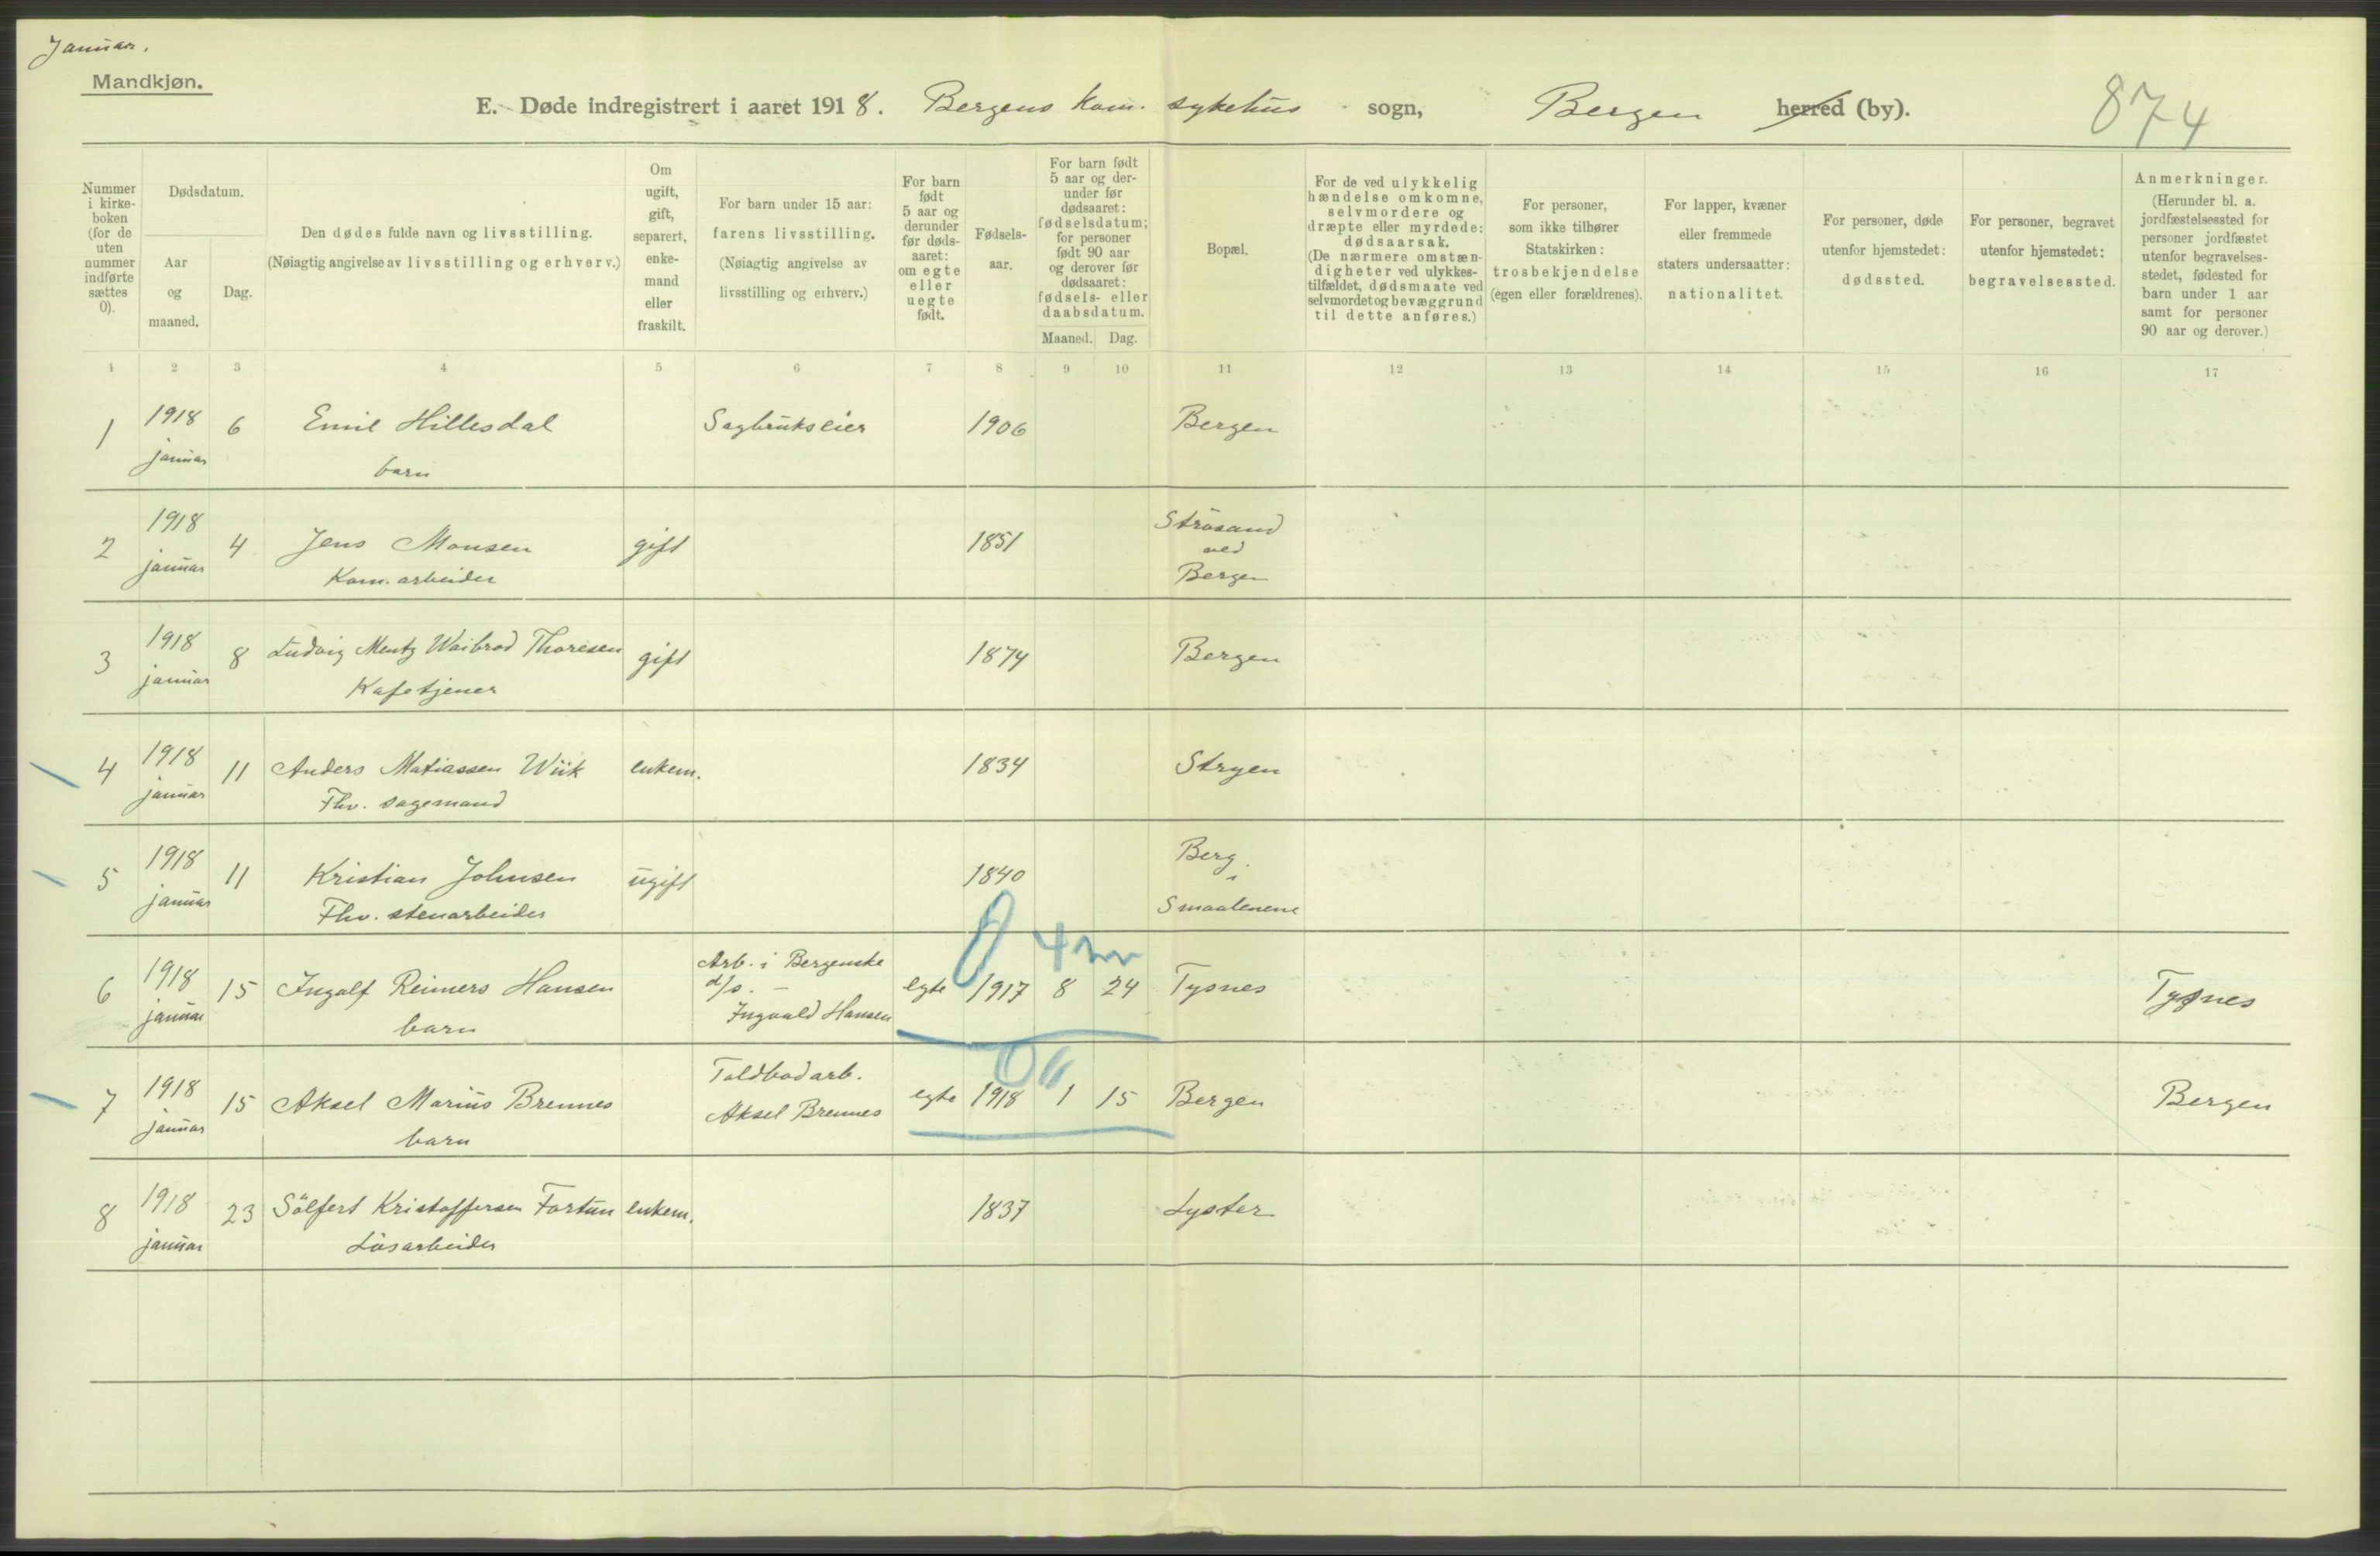 Januar.
Mandkjøn.
E. Døde indregistrert i aaret 1918. Bergens kom. sykehus sogn, Bergen herred (by).
874
Nummer i kirkeboken (for de uten nummer indførte sættes 0).
Dødsdatum.
Aar og maaned.
Dag.
Den dødes fulde navn og livsstilling.
(Nøiagtig angivelse av livsstilling og erhverv.)
Om ugift, gift, separert, enkemand eller fraskilt.
For barn under 15 aar: farens livsstilling.
(Nøiagtig angivelse av livsstilling og erhverv.)
For barn født 5 aar og derunder før dødsaaret: om egte eller uegte født.
Fødselsaar.
For barn født 5 aar og derunder før dødsaaret: fødselsdatum; for personer født 90 aar og derover før dødsaaret: fødsels- eller daabsdatum.
Maaned. Dag.
Bopæl.
For de ved ulykkelig hændelse omkomne, selvmordere og dræpte eller myrdede: dødsaarsak.
(De nærmere omstændigheter ved ulykkestilfældet, dødsmaate ved selvmordet og bevæggrund til dette anføres.)
For personer, som ikke tilhører Statskirken: trosbekjendelse (egen eller forældrenes).
For lapper, kvæner eller fremmede staters undersaatter: nationalitet.
For personer, døde utenfor hjemstedet: dødssted.
For personer, begravet utenfor hjemstedet: begravelsessted.
Anmerkninger.
(Herunder bl. a. jordfæstelsessted for personer jordfæstet utenfor begravelsesstedet, fødested for barn under 1 aar samt for personer 90 aar og derover.)
1 2 3 4 5 6 7 8 9 10 11 12 13 14 15 16 17
1 1918 januar 6 Emil Hillesdal Sagbrukseier 1906 Bergen
barn
2 1918 januar 4 Jens Monsen gift 1851 Strøsand ved Bergen
Kom. arbeider
3 1918 januar 8 Ludvig Mentz Waibrod Thoresen gift 1874 Bergen
Kafetjener
4 1918 januar 11 Anders Matiassen Wiik enkem. 1834 Stryen
Fhv. sagemand
5 1918 januar 11 Kristian Johnsen ugift 1840 Berg i Smaalenene
Fhv. stenarbeider
0 4 m
6 1918 januar 15 Ingolf Reimers Hansen Arb. i Bergenske d/s. – Ingvald Hansen egte 1917 8 24 Tysnes Tysnes
barn
0
7 1918 januar 15 Aksel Marius Brennes Toldbodarb. Aksel Brennes egte 1918 1 15 Bergen Bergen
barn
8 1918 januar 23 Sölfert Kristoffersen Fortun enkem. 1837 Lyster
Løsarbeider